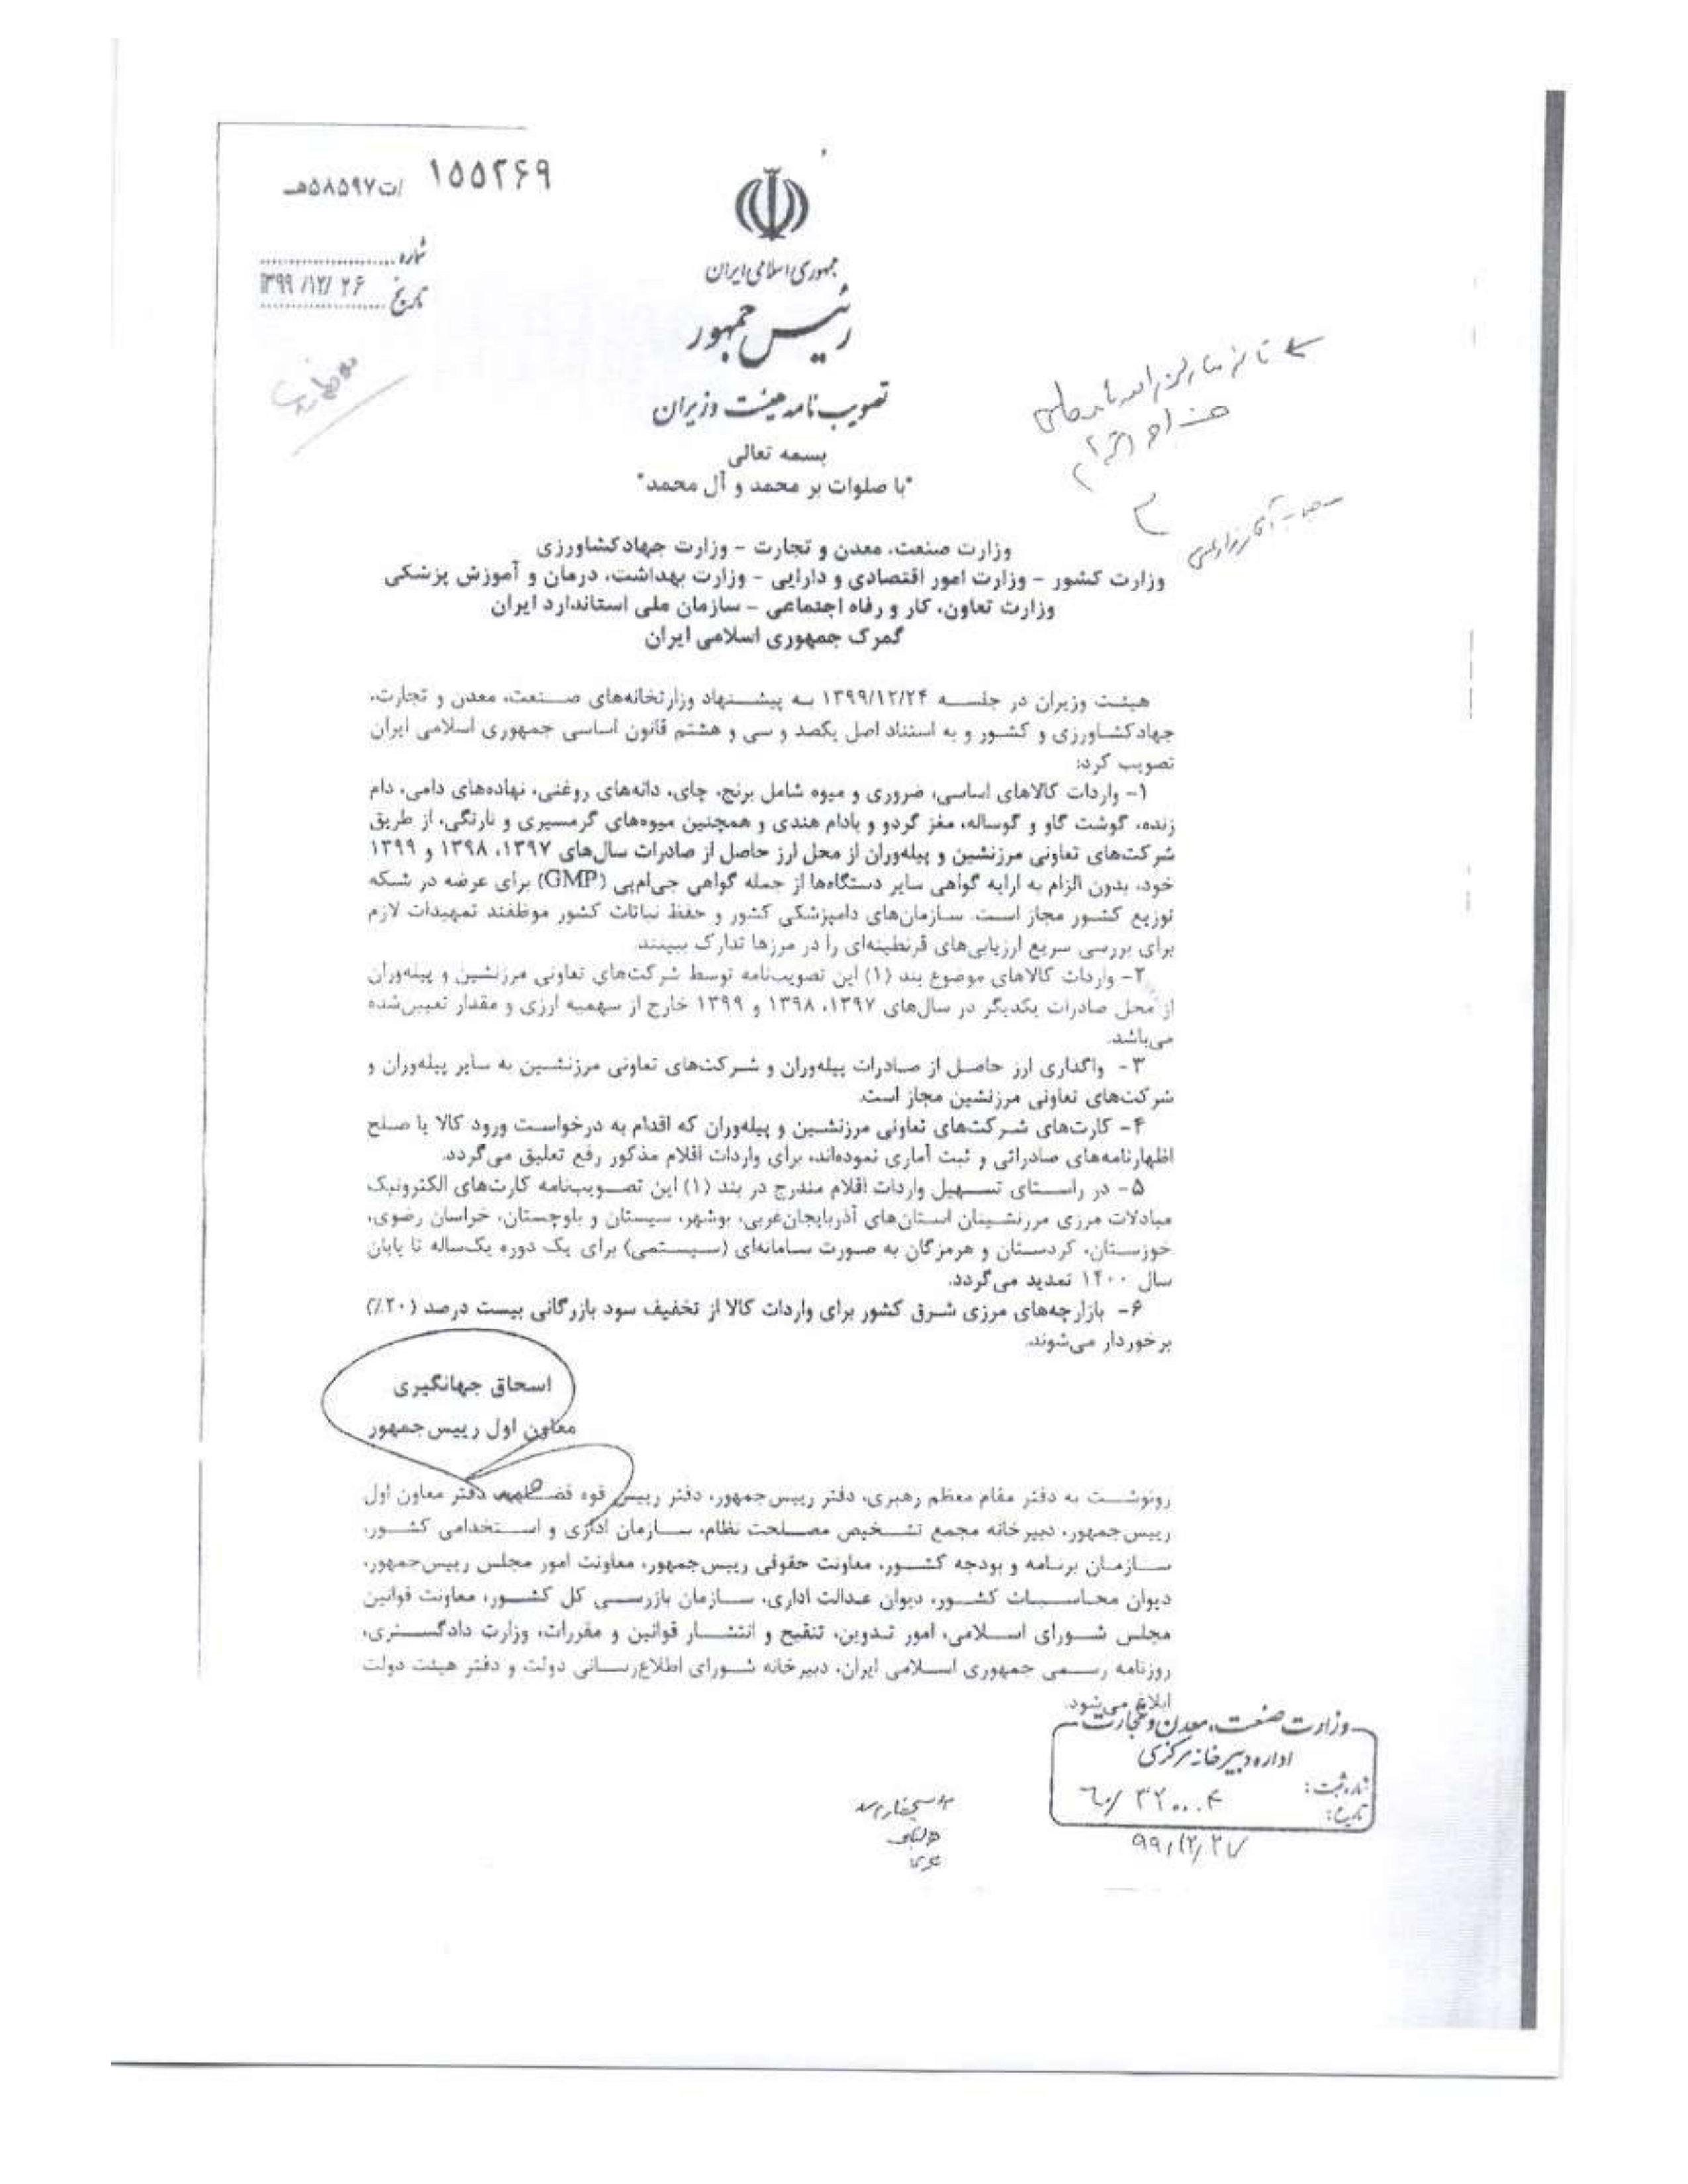 ۱۵۵۲۶۹ /ت۵۸۵۹۷هـ
شماره
تاریخ ۱۳۹۹/۱۲/۲۶
جمهوری اسلامی ایران
رئیس جمهور
تصویب نامه هیئت وزیران
بسمه تعالی
"با صلوات بر محمد و آل محمد"
وزارت صنعت، معدن و تجارت – وزارت جهادکشاورزی
وزارت کشور – وزارت امور اقتصادی و دارایی – وزارت بهداشت، درمان و آموزش پزشکی
وزارت تعاون، کار و رفاه اجتماعی – سازمان ملی استاندارد ایران
گمرک جمهوری اسلامی ایران
هیئت وزیران در جلسه ۱۳۹۹/۱۲/۲۴ به پیشنهاد وزارتخانه‌های صنعت، معدن و تجارت،
جهادکشاورزی و کشور و به استناد اصل یکصد و سی و هشتم قانون اساسی جمهوری اسلامی ایران
تصویب کرد:
۱- واردات کالاهای اساسی، ضروری و میوه شامل برنج، چای، دانه‌های روغنی، نهاده‌های دامی، دام
زنده، گوشت گاو و گوساله، مغز گردو و بادام هندی و همچنین میوه‌های گرمسیری و نارنگی، از طریق
شرکت‌های تعاونی مرزنشین و پیله‌وران از محل ارز حاصل از صادرات سال‌های ۱۳۹۷، ۱۳۹۸ و ۱۳۹۹
خود، بدون الزام به ارایه گواهی سایر دستگاه‌ها از جمله گواهی جی‌ام‌پی (GMP) برای عرضه در شبکه
توزیع کشور مجاز است. سازمان‌های دامپزشکی کشور و حفظ نباتات کشور موظفند تمهیدات لازم
برای بررسی سریع ارزیابی‌های قرنطینه‌ای را در مرزها تدارک ببینند.
۲- واردات کالاهای موضوع بند (۱) این تصویب‌نامه توسط شرکت‌های تعاونی مرزنشین و پیله‌وران
از محل صادرات یکدیگر در سال‌های ۱۳۹۷، ۱۳۹۸ و ۱۳۹۹ خارج از سهمیه ارزی و مقدار تعیین‌شده
می‌باشد.
۳- واگذاری ارز حاصل از صادرات پیله‌وران و شرکت‌های تعاونی مرزنشین به سایر پیله‌وران و
شرکت‌های تعاونی مرزنشین مجاز است.
۴- کارت‌های شرکت‌های تعاونی مرزنشین و پیله‌وران که اقدام به درخواست ورود کالا یا صلح
اظهارنامه‌های صادراتی و ثبت آماری نموده‌اند، برای واردات اقلام مذکور رفع تعلیق می‌گردد.
۵- در راستای تسهیل واردات اقلام مندرج در بند (۱) این تصویب‌نامه کارت‌های الکترونیک
مبادلات مرزی مرزنشینان استان‌های آذربایجان‌غربی، بوشهر، سیستان و بلوچستان، خراسان رضوی،
خوزستان، کردستان و هرمزگان به صورت سامانه‌ای (سیستمی) برای یک دوره یک‌ساله تا پایان
سال ۱۴۰۰ تمدید می‌گردد.
۶- بازارچه‌های مرزی شرق کشور برای واردات کالا از تخفیف سود بازرگانی بیست درصد (۲۰٪)
برخوردار می‌شوند.
اسحاق جهانگیری
معاون اول رییس جمهور
رونوشت به دفتر مقام معظم رهبری، دفتر رییس‌جمهور، دفتر رییس قوه قضاییه، دفتر معاون اول
رییس‌جمهور، دبیرخانه مجمع تشخیص مصلحت نظام، سازمان اداری و استخدامی کشور،
سازمان برنامه و بودجه کشور، معاونت حقوقی رییس‌جمهور، معاونت امور مجلس رییس‌جمهور،
دیوان محاسبات کشور، دیوان عدالت اداری، سازمان بازرسی کل کشور، معاونت قوانین
مجلس شورای اسلامی، امور تدوین، تنقیح و انتشار قوانین و مقررات، وزارت دادگستری،
روزنامه رسمی جمهوری اسلامی ایران، دبیرخانه شورای اطلاع‌رسانی دولت و دفتر هیئت دولت
ابلاغ می‌شود.
وزارت صنعت، معدن و تجارت
اداره دبیرخانه مرکزی
شماره ثبت: ۶۰/۳۲۰۰۰۴
تاریخ:
۹۹/۱۲/۲۷